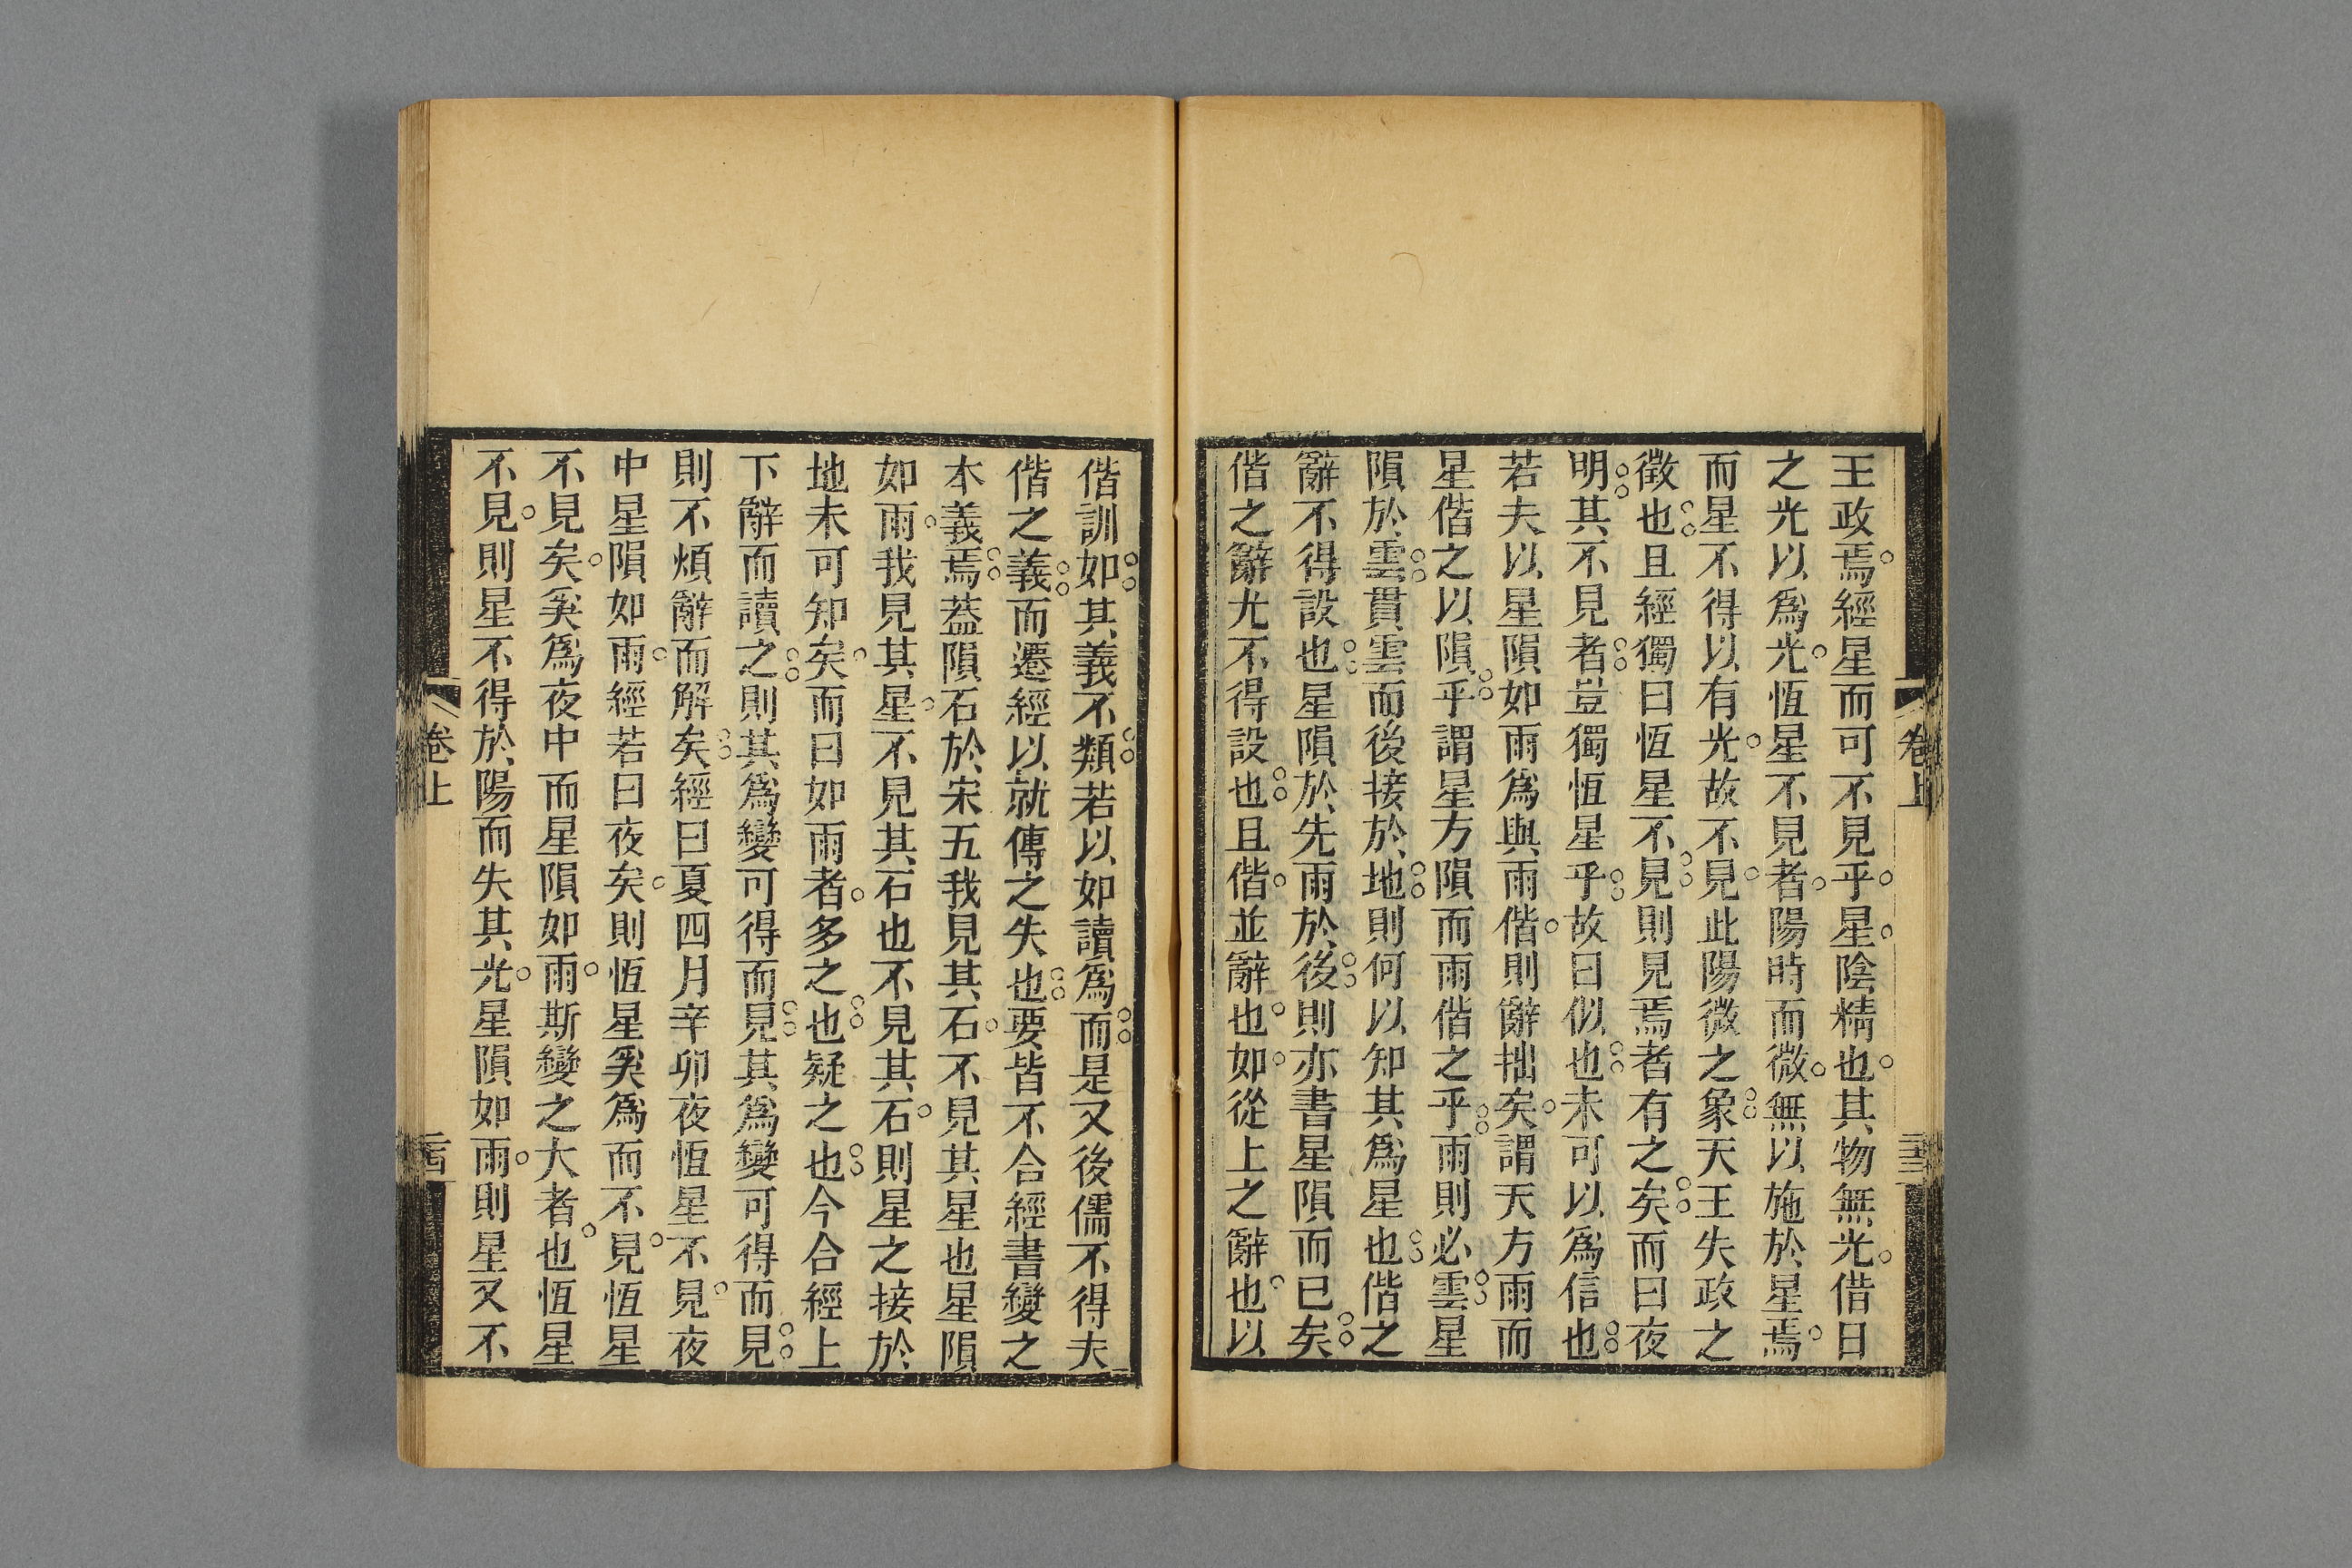 王政焉經星而可不見乎星陰精也其物無光借日
之光以爲光恆星不見者陽時而微無以施於星焉
而星不得以有光故不見此陽微之象天王失政之
徵也且經獨曰恆星不見則見焉者有之矣而曰夜
明其不見者豈獨恆星乎故曰似也未可以爲信也
若夫以星隕如雨爲與雨偕則辭拙矣謂天方雨而
星偕之以隕乎謂星方隕而雨偕之乎雨則必雲星
隕於雲貫雲而後接於地則何以知其爲星也偕之
辭不得設也星隕於先雨於後則亦書星隕而已矣
偕之辭尤不得設也且偕並辭也如從上之辭也以
卷上
二十三
偕訓如其義不類若以如讀爲而是又後儒不得夫
偕之義而遷經以就傳之失也要皆不合經書變之
本義焉葢隕石於宋五我見其石不見其星也星隕
如雨我見其星不見其石也不見其石則星之接於
地未可知矣而曰如雨者多之也疑之也今合經上
下辭而讀之則其爲變可得而見其爲變可得而見
則不煩辭而解矣經曰夏四月辛卯夜恆星不見夜
中星隕如雨經若曰夜矣則恆星奚爲而不見恆星
不見矣奚爲夜中而星隕如雨斯變之大者也恆星
不見則星不得於陽而失其光星隕如雨則星又不
卷上
二十四